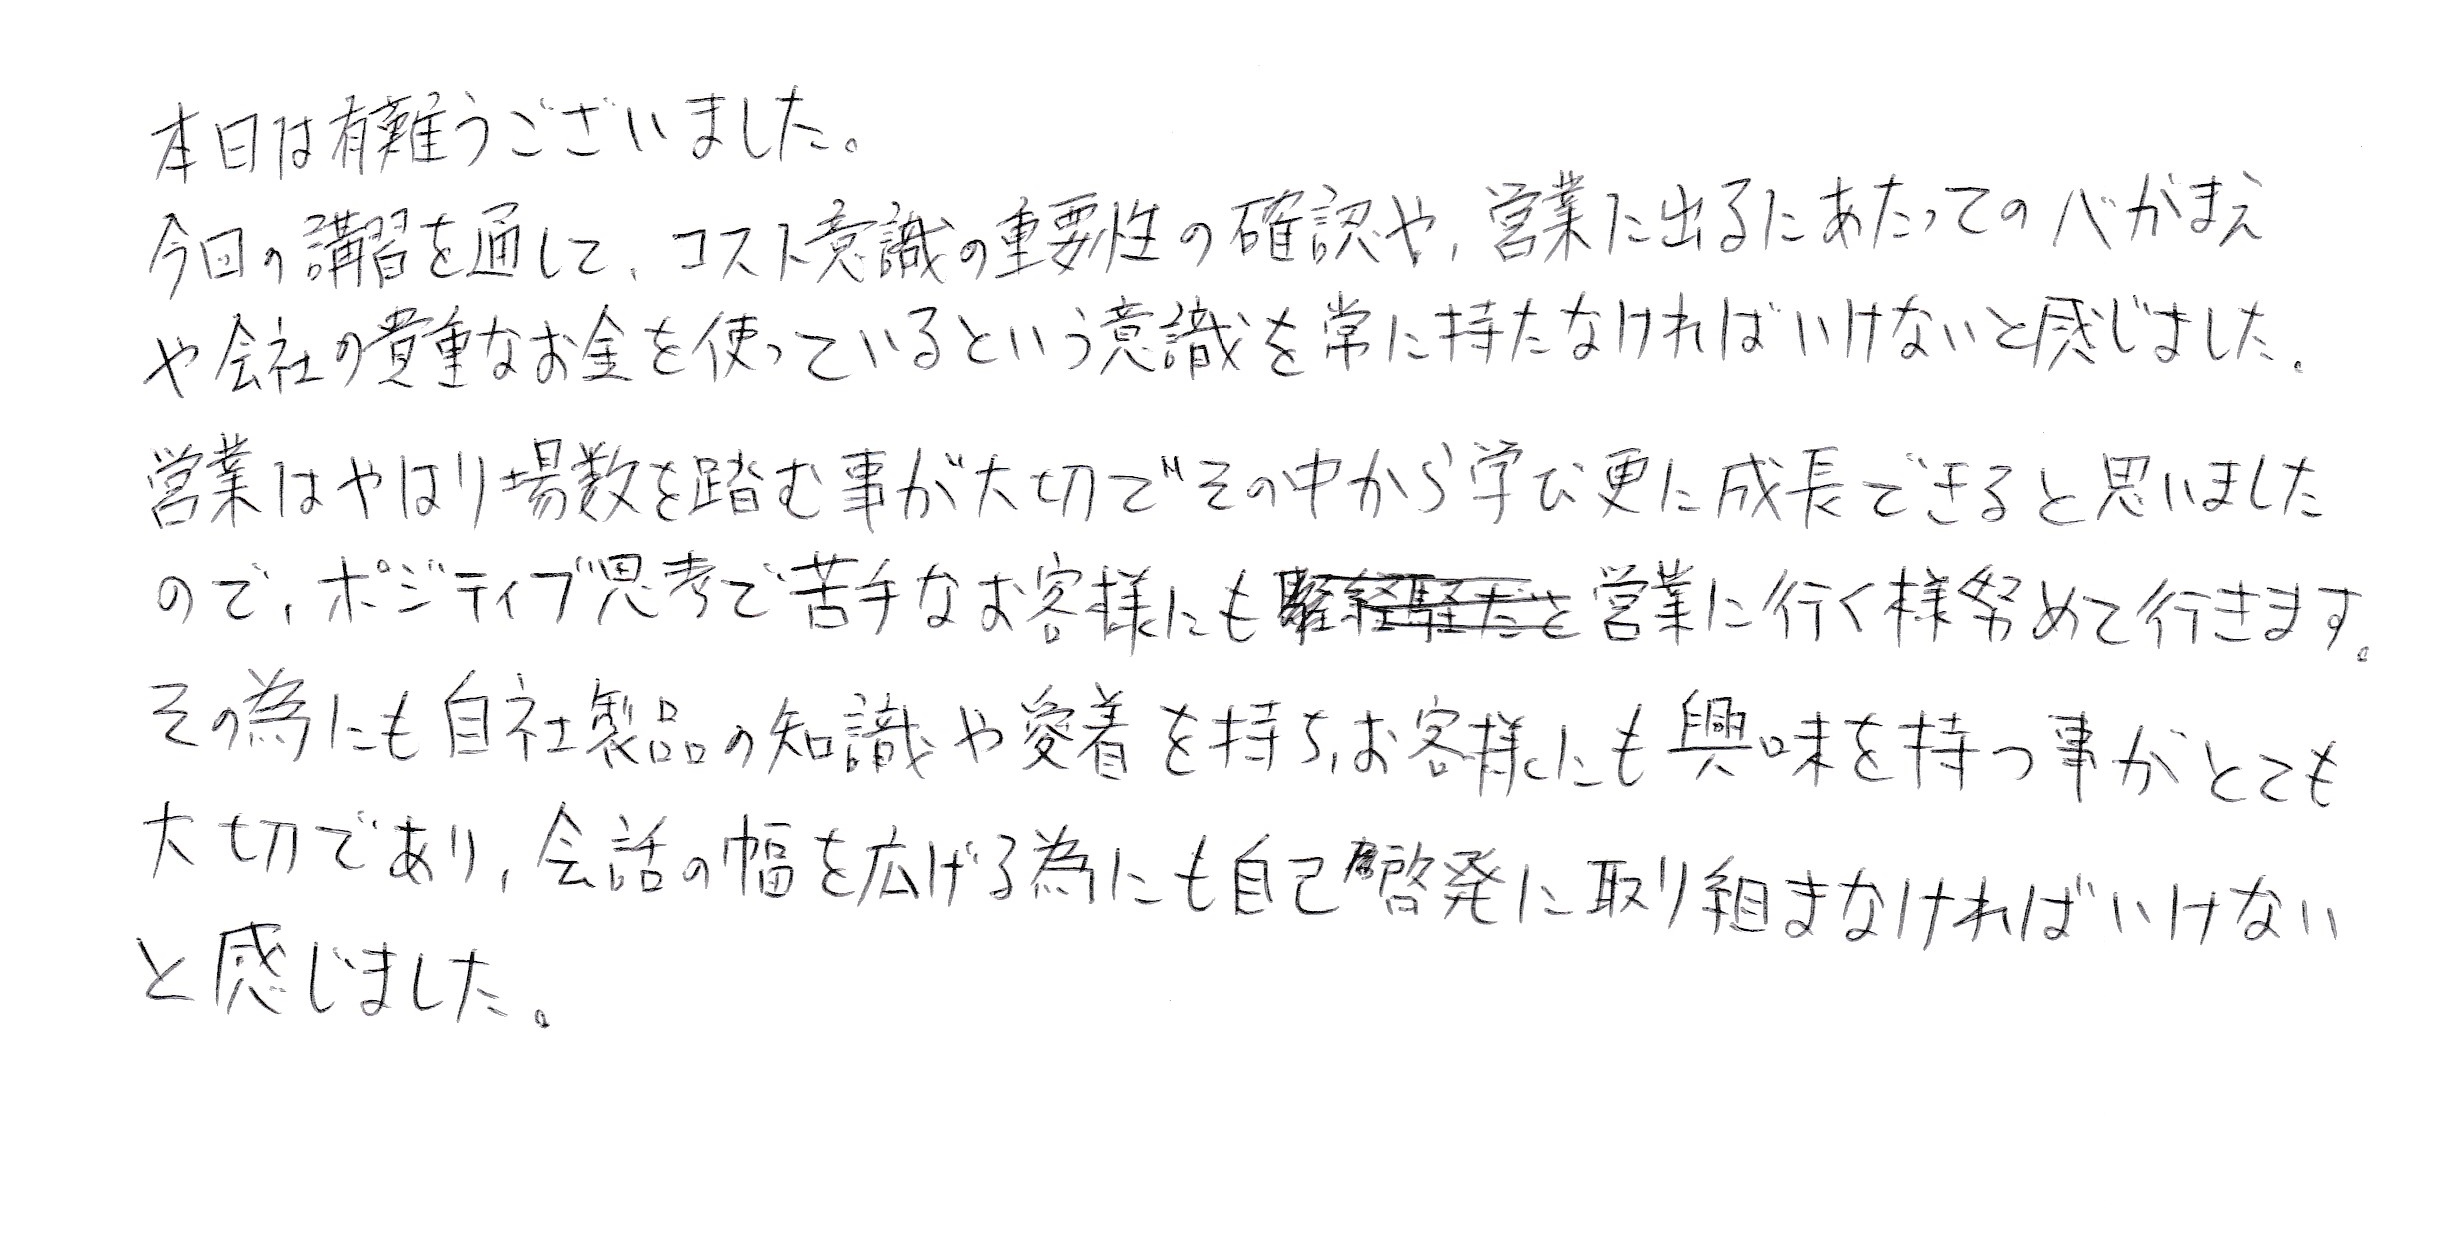 本日は有難うございました。
今回の講習を通して、コスト意識の重要性の確認や、営業に出るにあたっての心がまえ
や会社の貴重なお金を使っているという意識を常に持たなければいけないと感じました。
営業はやはり場数を踏む事が大切でその中から学び更に成長できると思いました
ので、ポジティブ思考で苦手なお客様にも営業に行く様努めて行きます。
その為にも自社製品の知識や愛着を持ち、お客様にも興味を持つ事がとても
大切であり、会話の幅を広げる為にも自己啓発に取り組まなければいけない
と感じました。